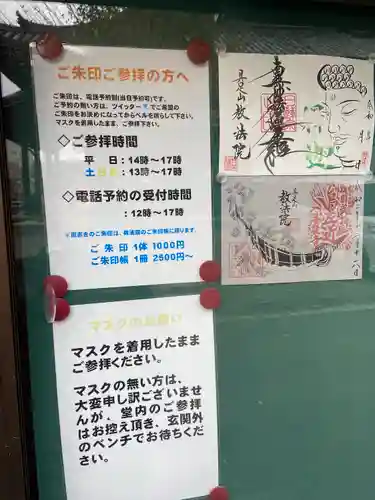 ご朱印ご参拝の方へ
ご朱印は、電話予約制(当日予約可)です。
ご予約の無い方は、ツイッターでご希望の
ご朱印をお決めになってからベルを鳴らして下さい。
マスクを着用したまま、ご参拝下さい。
◇ご参拝時間
平　日：14時〜17時
土日祝：13時〜17時
◇電話予約の受付時間
：12時〜17時
ご 朱 印 1体 1000円
ご朱印帳 1冊 2500円〜
マスクのお願い
マスクを着用したまま
ご参拝ください。
マスクの無い方は、
大変申し訳ございませ
んが、堂内のご参拝
はお控え頂き、玄関外
のベンチでお待ちくだ
さい。
教法院
教法院